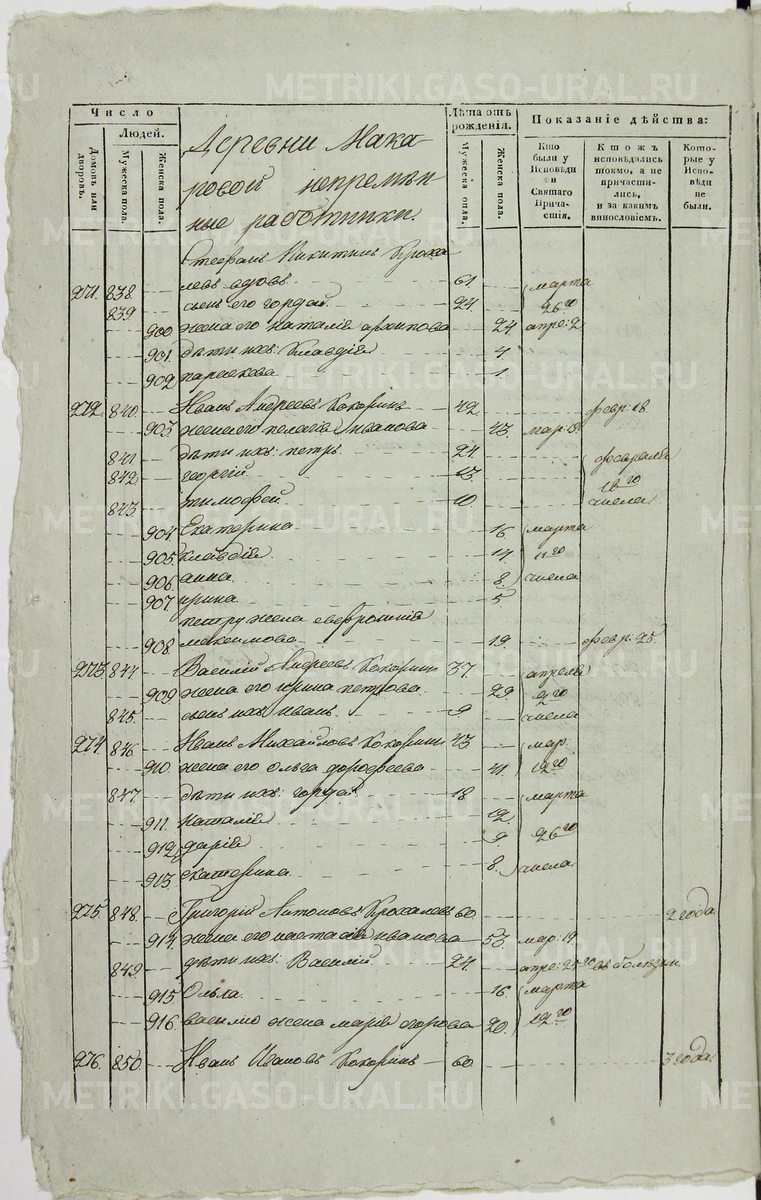 METRIKI.GASO-URAL.RU
Число
Людей.
Домовъ или дворовъ.
Мужеска пола.
Женска пола.
Лѣта отъ рожденія.
Мужеска пола.
Женска пола.
Показаніе дѣйства:
Кто были у Исповѣди и Святаго Причастія.
Кто жъ исповѣдались токмо, а не причастились, и за какимъ винословіемъ.
Которые у Исповѣди не были.
Деревни Мака-
ровой непремѣн-
ные работники.
Стефанъ Никитинъ Кроха
271. 838. левъ вдовъ 61. марта
839 сынъ его гордей 24. 26го
900 жена его наталія архипова 24 апре: 2
901. дѣти ихъ: Клавдія 4
902 параскова 1.
272. 840. Иванъ Андреевъ Кокоринъ 42. февр: 18.
903 жена его пелагія иванова 43. мар: 18
841. дѣти ихъ: петръ 24. февраля
842 георгій 13 18го
843 тимофей 10. числа
904. Екатерина 16 марта
905 клавдія 14. 11го
906 анна 8. числа
907 ирина 5
петру жена евфросинія
908 максимова 19. февр: 25.
273 844 Василій Андреевъ Кокоринъ 37. апреля
909 жена его ирина петрова 29. 2го
845. сынъ ихъ иванъ 9 числа
274 846. Иванъ Михайловъ Кокоринъ 43 мар
910 жена его Ольга дорофеева 41. 19го
847. дѣти ихъ: гордей 18 марта
911. наталія 12.
912 дарія 9 26го
913 екатерина 8. числа
275 848. Григорій Антоновъ Крохалевъ 60 2 года
914. жена его настасія иванова 53 мар: 19.
849. дѣти ихъ: Василій 24. апре: 25го въ болезни
915 Ольга. 16. марта
916 василію жена марія егорова 20 19го
276. 850. Иванъ Ивановъ Кокоринъ 60 3 года